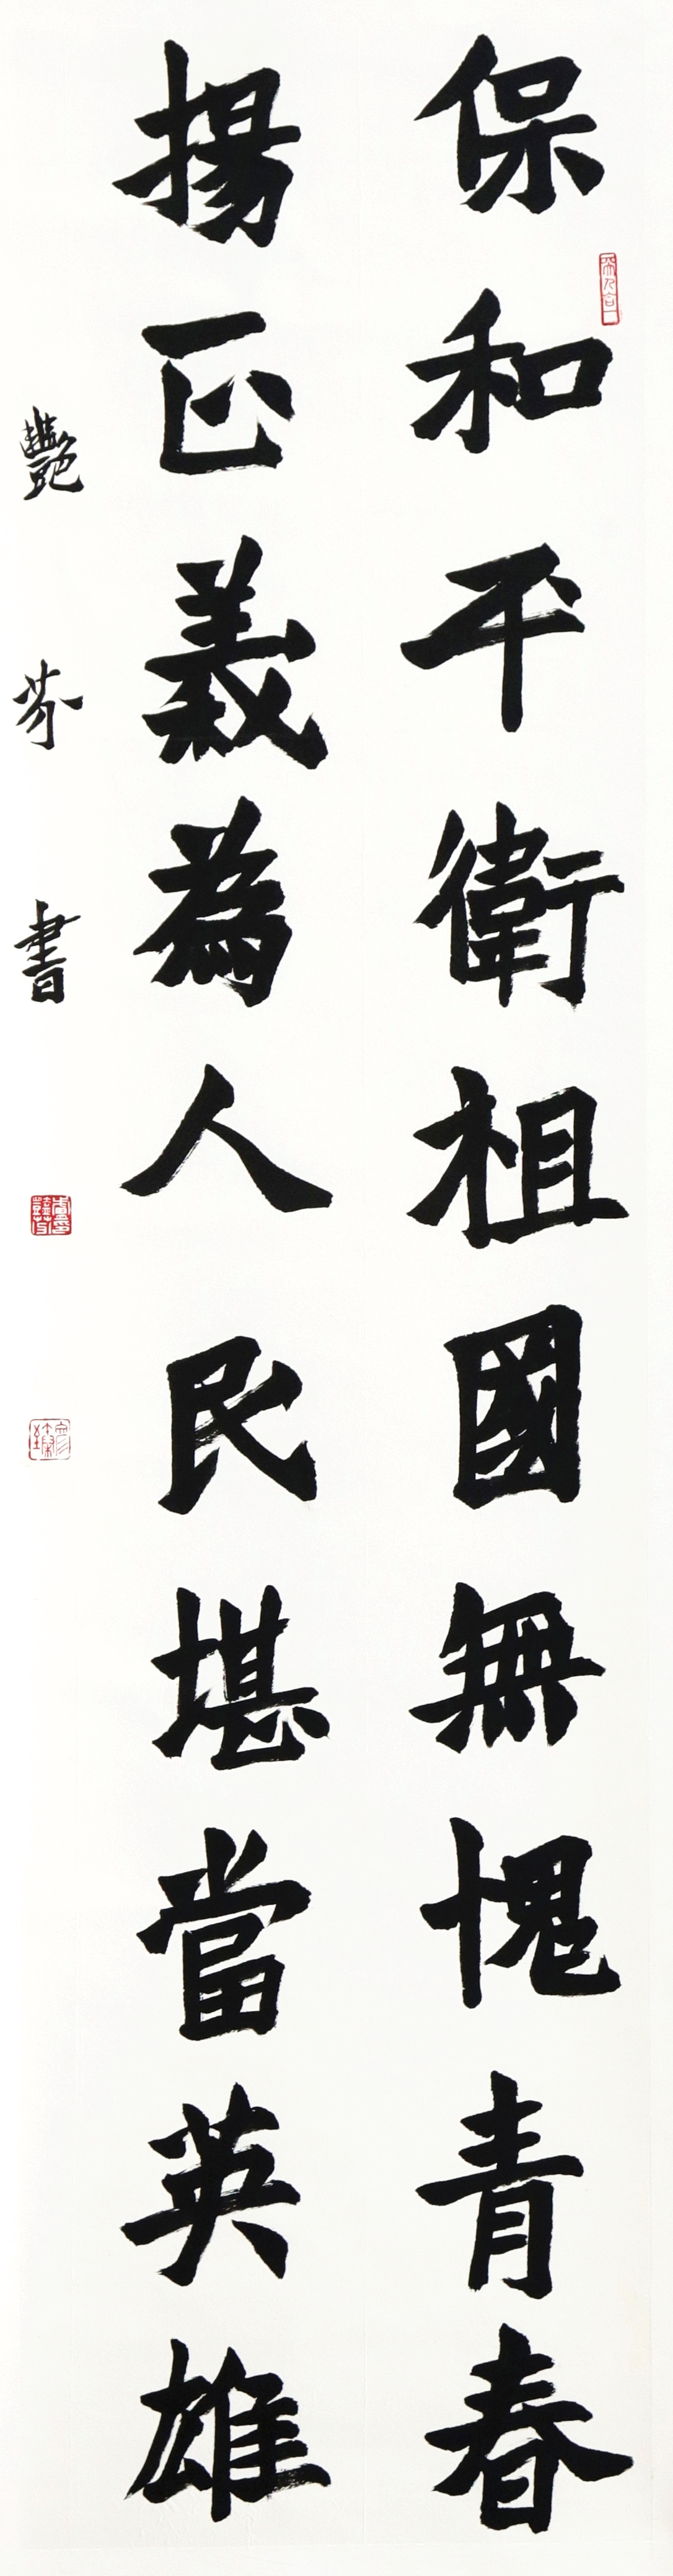 保和平衛祖國無愧青春
揚正義為人民堪當英雄
艷芬書